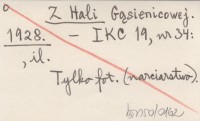 Z Hali Gąsienicowej.
1928. – IKC 19, nr 34:
, il.
Tylko fot. (narciarstwo).